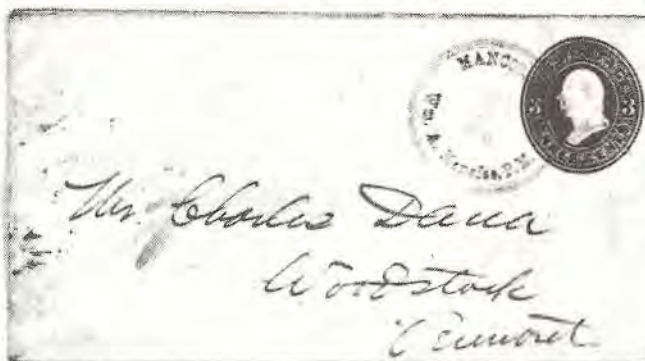 MANCO
Wm. A.
P.M.
3 3
Mr Charles Dana
Woodstock
Vermont